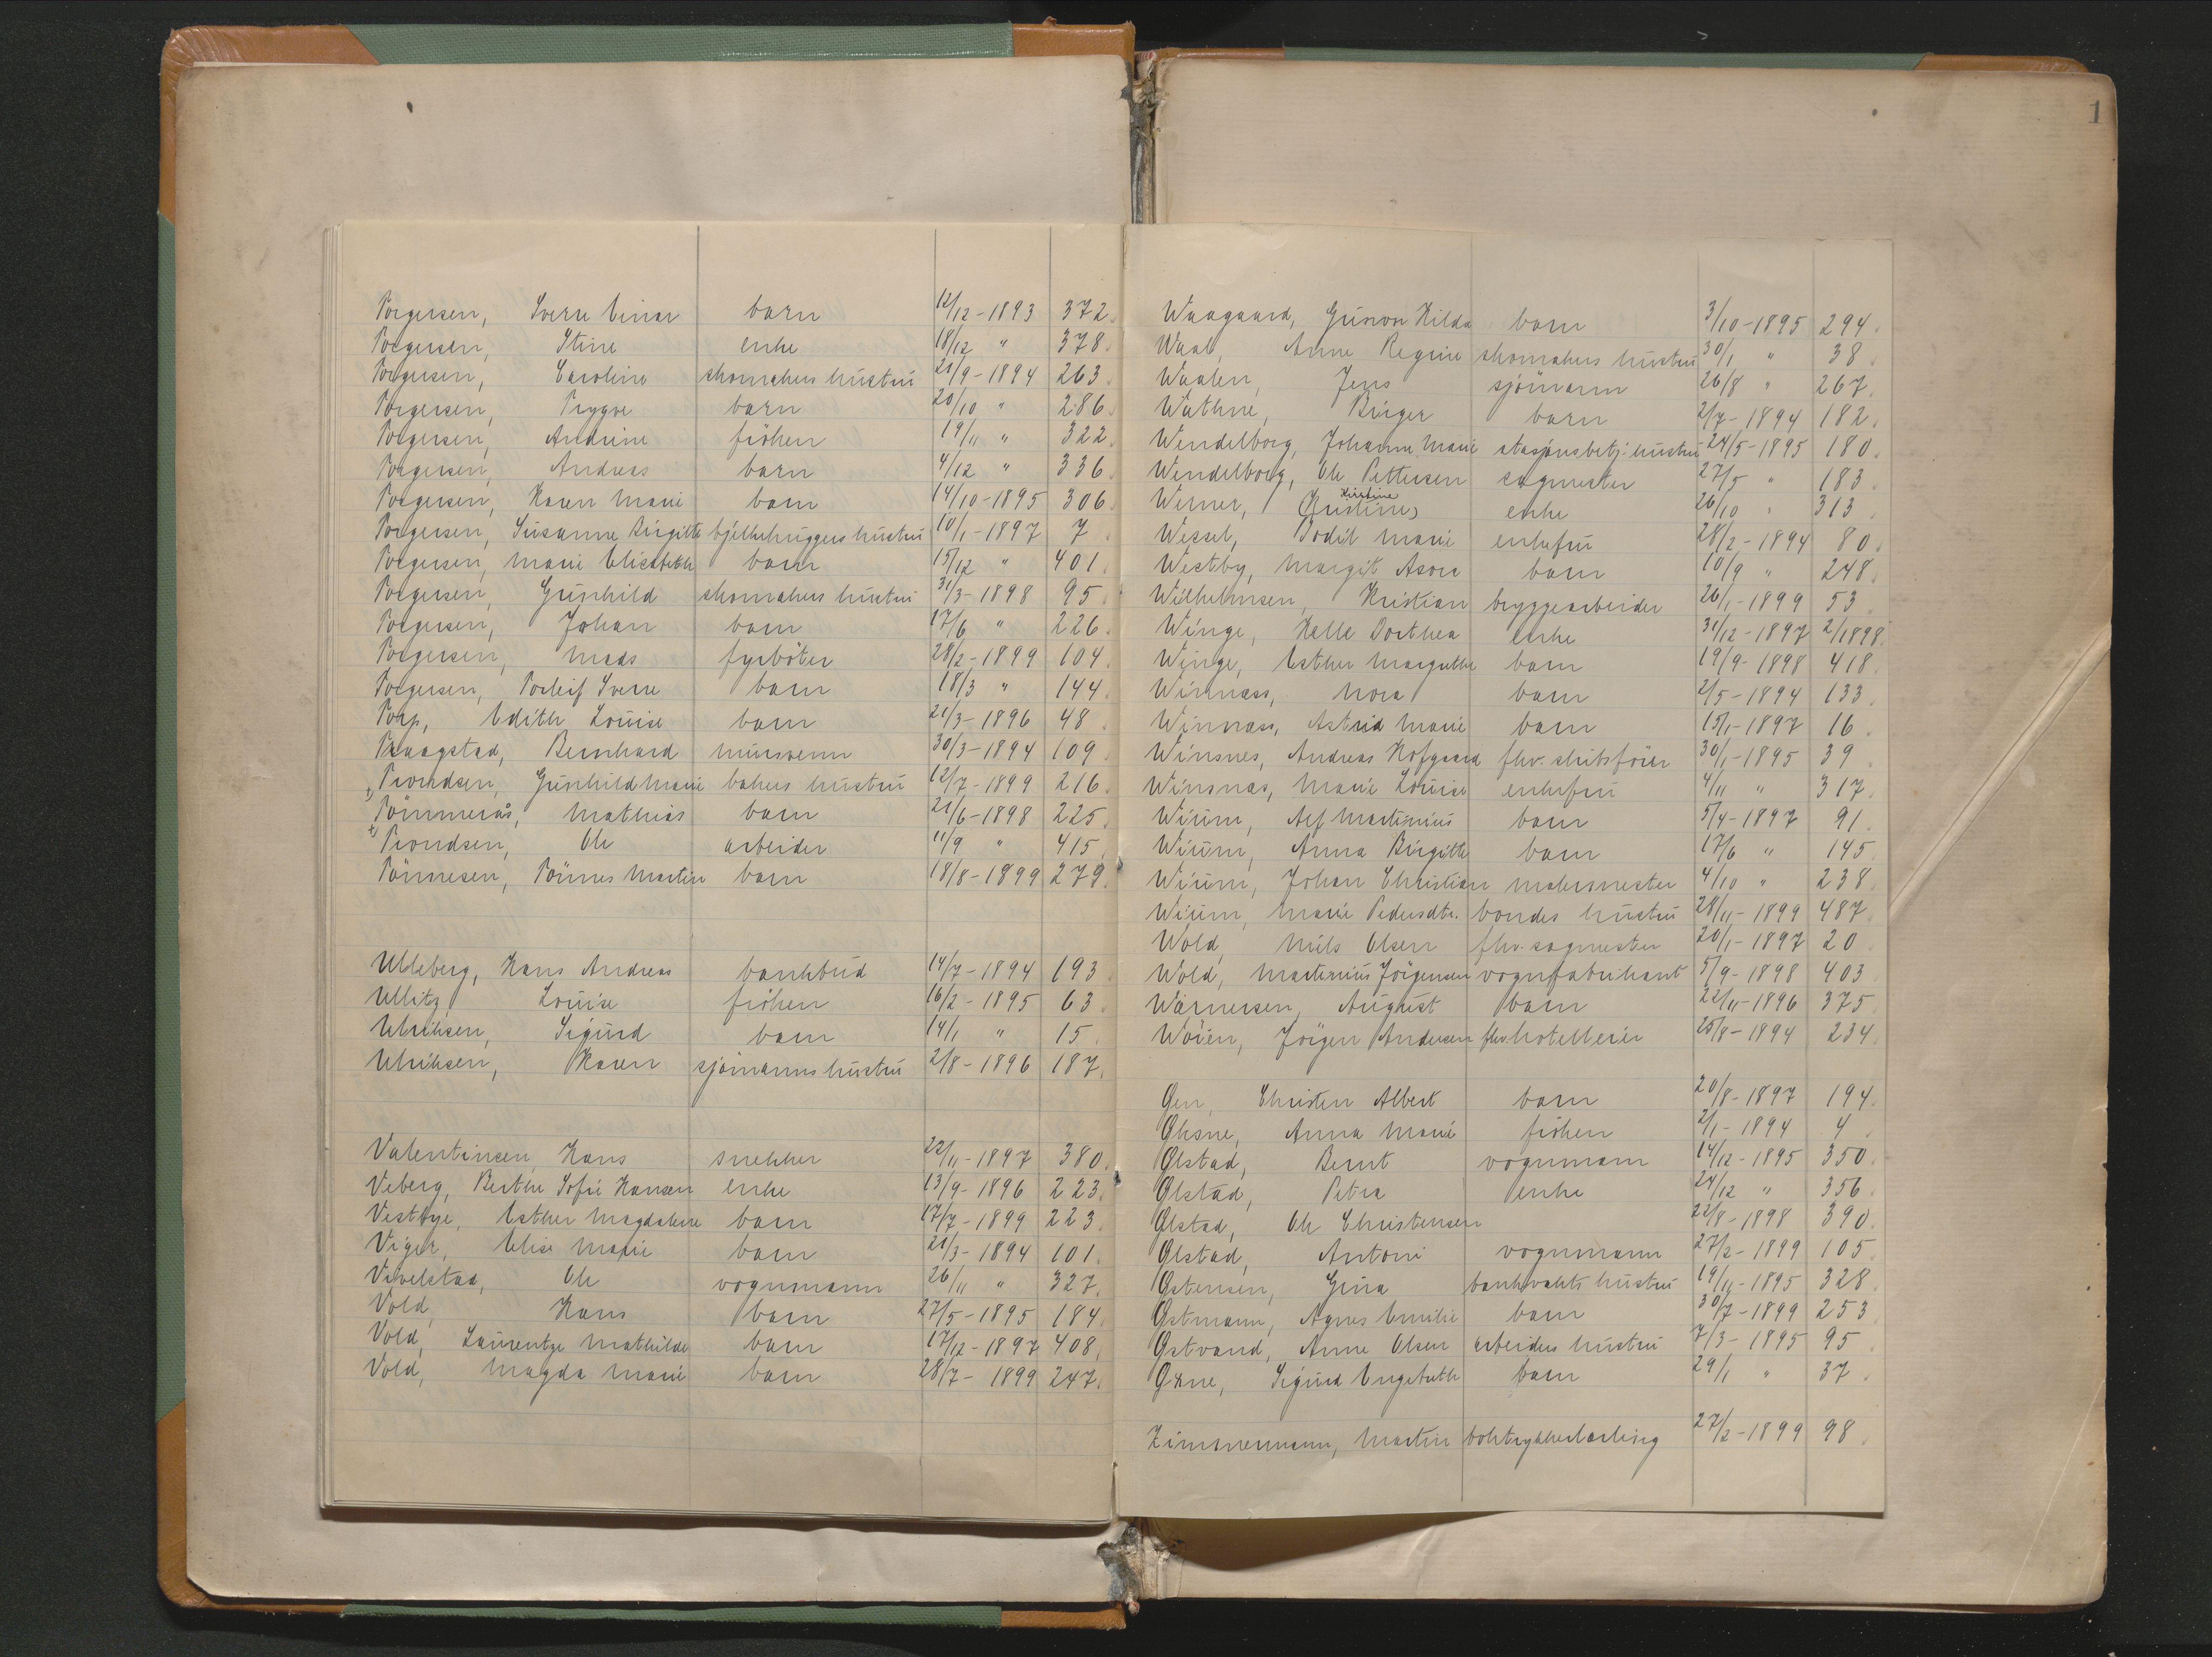 Torgersen, Sverre Einar barn 12/12-1893 372.
Torgersen, Stine enke 18/12 " 378.
Torgersen, Caroline skomakers hustru 21/9-1894 263.
Torgersen, Trygve barn 20/10 " 286.
Torgersen, Andrine fröken 19/11 " 322.
Torgersen, Andreas barn 4/12 " 336.
Torgersen, Karen Marie barn 14/10-1895 306.
Torgersen, Susanne Birgitte bjelkehuggers hustru 10/1-1897 7.
Torgersen, Marie Elisabeth barn 15/12 " 401.
Torgersen, Gunhild skomakers hustru 31/3-1898 95.
Torgersen, Johan barn 17/6 " 226.
Torgersen, Mads fyrböter 28/2-1899 104.
Torgersen, Torleif Sverre barn 18/3 " 144.
Torp, Edith Louise barn 21/3-1896 48.
Traagstad, Bernhard mursvenn 30/3-1894 109.
Trondsen, Gunhild Marie bakers hustru 12/7-1899 216.
Tömmerås, Mathias barn 21/6-1898 225.
Trondsen, Ole arbeider 11/9 " 415.
Tönnesen, Tönnes Martin barn 18/8-1899 279.
Ulleberg, Hans Andreas bankbud 14/7-1894 193.
Ullitz, Louise fröken 16/2-1895 63.
Ulriksen, Sigurd barn 14/1 " 15.
Ulriksen, Karen sjömanns hustru 2/8-1896 187.
Valentinsen, Hans snekker 22/11-1897 380.
Veberg, Berthe Sofie Hansen enke 13/9-1896 223.
Vestbye, Esther Magdalene barn 17/7-1899 223.
Viger, Elise Marie barn 21/3-1894 101.
Vivelstad, Ole vognmann 26/11 " 327.
Vold, Hans barn 27/5-1895 184.
Vold, Laurentze Mathilde barn 17/12-1897 408.
Vold, Magda Marie barn 28/7-1899 247.
1
Waagaard, Gunvor Hilda barn 3/10-1895 294.
Waal, Anne Regine skomakers hustru 30/1 " 38.
Waalen, Jens sjömann 26/8 " 267.
Wathne, Birger barn 2/7-1894 182.
Wendelborg, Johanne Marie stasjonsbetj. hustru 24/5-1895 180.
Wendelborg, Ole Pettersen sagmester 27/5 " 183.
Kristine
Werner, (Kristine) enke 26/10 " 313.
Wessel, Bodil Marie enkefru 28/2-1894 80.
Westby, Margit Asora barn 10/9 " 248.
Wilhelmsen, Kristian bryggearbeider 26/1-1899 53.
Winge, Helle Dorthea enke 31/12-1897 2/1898.
Winge, Esther Margrethe barn 19/9-1898 418.
Winnass, Nora barn 2/5-1894 133.
Winnass, Astrid Marie barn 15/1-1897 16.
Winsnes, Andreas Hofgaard fhv. skibsförer 30/1-1895 39.
Winsnas, Marie Louise enkefru 4/11 " 317.
Wiium, Alf Martinius barn 5/4-1897 91.
Wiium, Anna Birgitte barn 17/6 " 145.
Wiium, Johan Christian malermester 4/10 " 238.
Wiium, Marie Pedersdtr. bondes hustru 28/11-1899 487.
Wold, Nils Olsen fhv. sagmester 20/1-1897 20.
Wold, Martinius Jörgensen vognfabrikant 5/9-1898 403.
Wärnersen, August barn 22/11-1896 375.
Wöien, Jörgen Andersen fhv. hotelleier 25/8-1894 234.
Øen, Christen Albert barn 20/8-1897 194.
Øksne, Anna Marie fröken 2/1-1894 4.
Ølstad, Bernt vognmann 14/12-1895 350.
Ølstad, Petra enke 24/12 " 356.
Ølstad, Ole Christensen 22/8-1898 390.
Ølstad, Antoni vognmann 27/2-1899 105.
Østensen, Gina bankvakts hustru 19/11-1895 328.
Østmann, Agnes Emilie barn 30/7-1899 253.
Østvand, Anne Olsen arbeiders hustru 7/3-1895 95.
Øxne, Sigurd Engebreth barn 29/1 " 37.
Zimmermann, Martin boktrykkerlærling 27/2-1899 98.